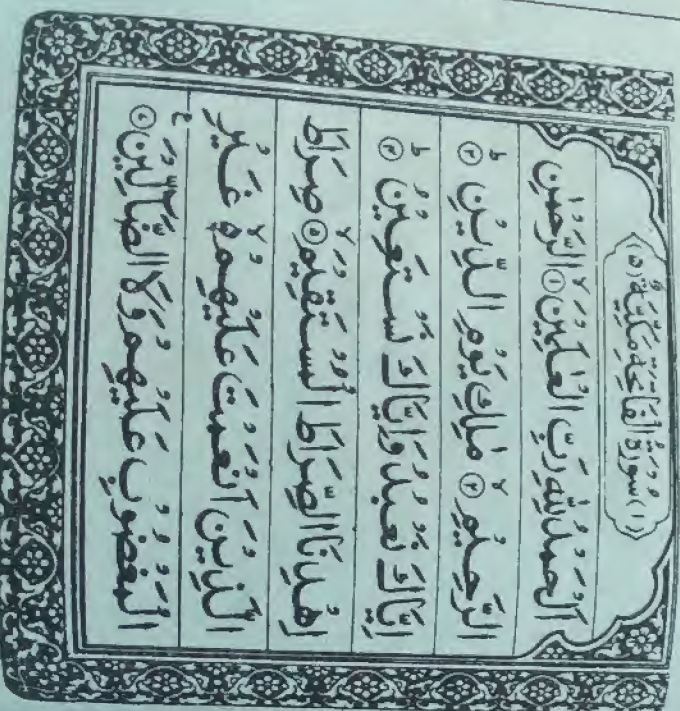 (١) سُوْرَةُ الْفَاتِحَةِ مَكِّيَّةٌ (٥)
اَلْحَمْدُ لِلّٰهِ رَبِّ الْعٰلَمِيْنَ ۙ﴿١﴾ الرَّحْمٰنِ
الرَّحِيْمِ ۙ﴿٢﴾ مٰلِكِ يَوْمِ الدِّيْنِ ؕ﴿٣﴾
اِيَّاكَ نَعْبُدُ وَاِيَّاكَ نَسْتَعِيْنُ ؕ﴿٤﴾
اِهْدِنَا الصِّرَاطَ الْمُسْتَقِيْمَ ۙ﴿٥﴾ صِرَاطَ
الَّذِيْنَ اَنْعَمْتَ عَلَيْهِمْ ۙ﴿٦﴾ غَيْرِ
الْمَغْضُوْبِ عَلَيْهِمْ وَلَا الضَّآلِّيْنَ ﴿٧﴾ ع